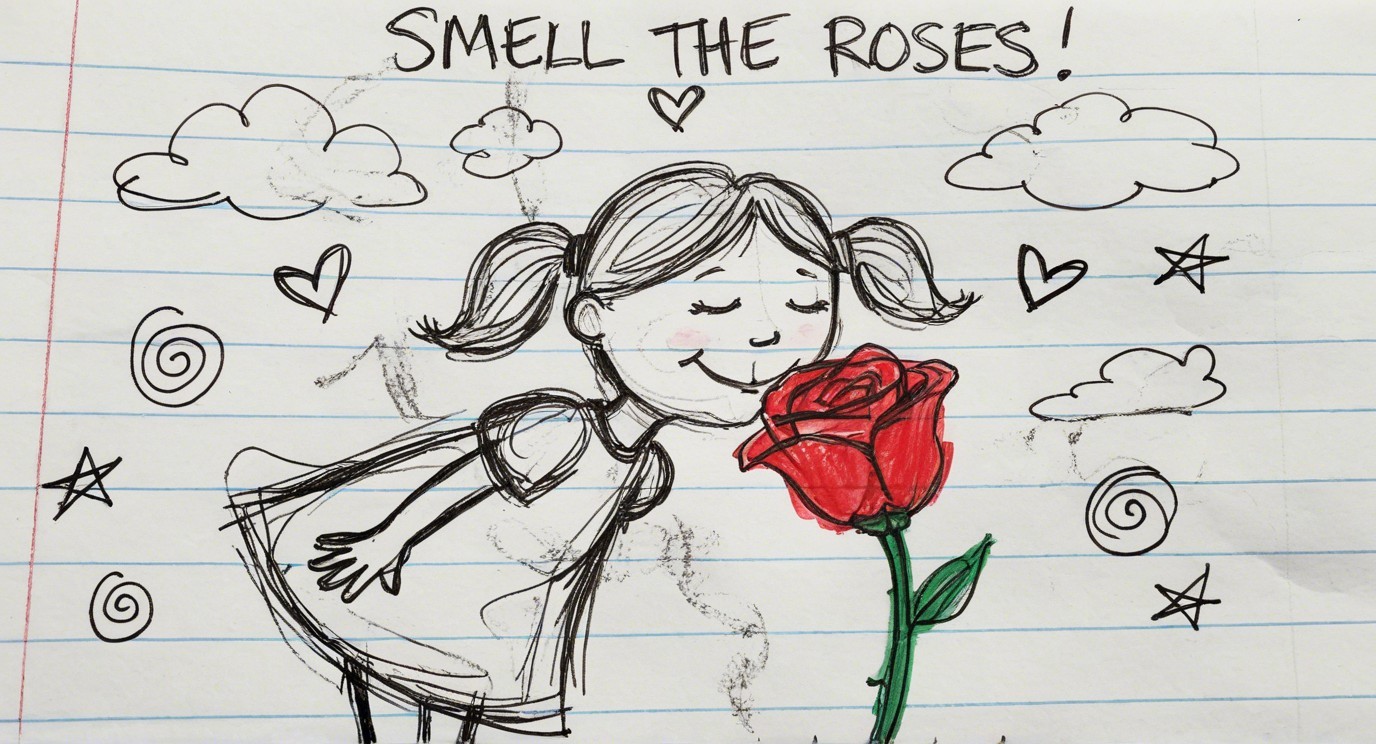 SMELL THE ROSES!